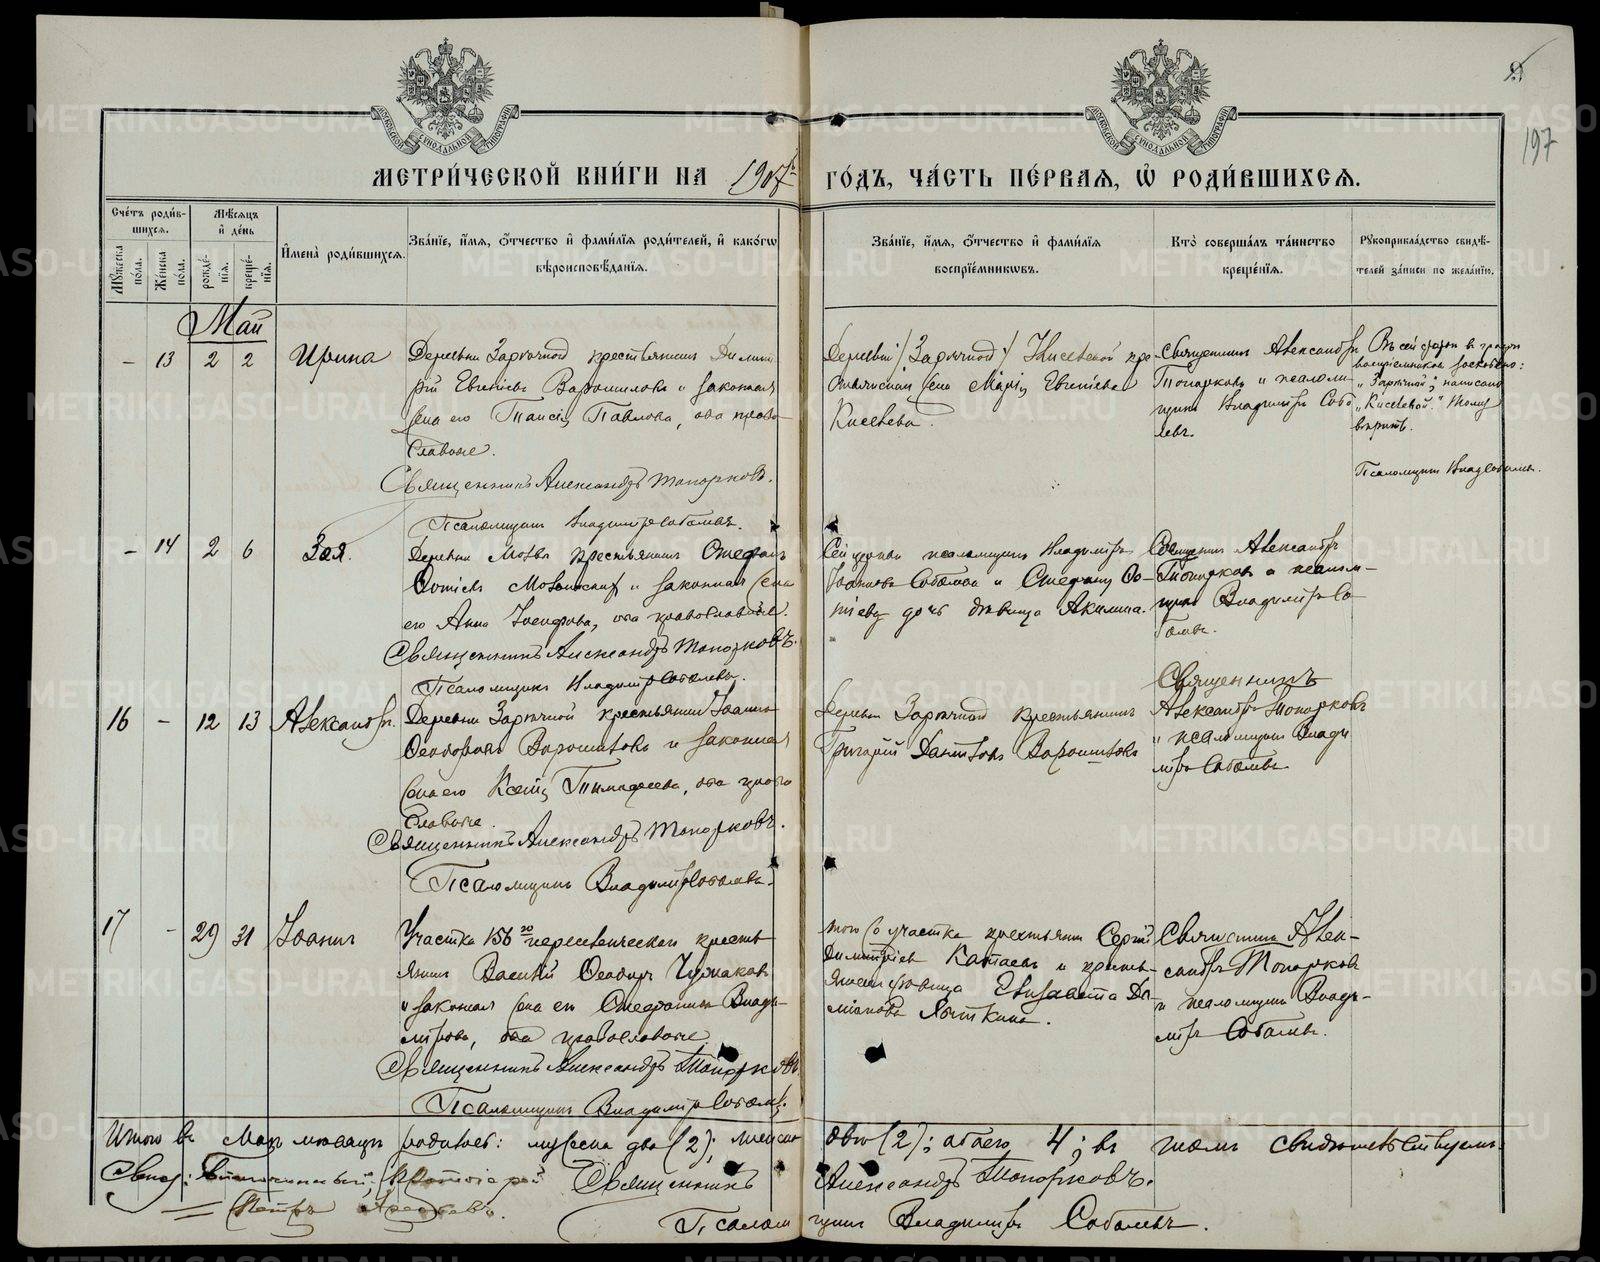 МОСКОВСКОЙ СѴНОДАЛЬНОЙ ТИПОГРАФІИ
МОСКОВСКОЙ СѴНОДАЛЬНОЙ ТИПОГРАФІИ
197
МЕТРИ́ЧЕСКОЙ КНИ́ГИ НА 1907й ГО́ДЪ, ЧА́СТЬ ПЕ́РВАѦ, Ѡ҆ РОДИ́ВШИХСѦ.
Сче́тъ роди́в-
шихсѧ.
Мꙋ́жеска по́ла.
Же́нска по́ла.
Мѣ́сѧцъ
и҆ де́нь
рожде́-
нїѧ.
креще́-
нїѧ.
И҆мена̀ роди́вшихсѧ.
Зва́нїе, и҆́мѧ, ѻ҆́тчество и҆ фами́лїѧ роди́телей, и҆ како́гѡ
вѣроисповѣ́данїѧ.
Зва́нїе, и҆́мѧ, ѻ҆́тчество и҆ фами́лїѧ
воспрїе́мникѡвъ.
Кто̀ соверша́лъ та́инство
креще́нїѧ.
Рꙋкоприкла́дство свидѣ́-
телей за́писи по жела́нїю.
Май
– 13 2 2 Ирина
Деревни Заречной крестьянинъ Димит-
рій Евгеніевъ Ворошиловъ и законная
жена его Таисія Павлова, оба право-
славные.
Священникъ Александръ Топорковъ.
Псаломщикъ Владиміръ Соболевъ.
Деревни /Заречной/ Киселевой кре-
стьянская жена Марія Евгеніева
Киселева.
Священникъ Александръ
Топорковъ и псалом-
щикъ Владиміръ Собо-
левъ.
Въ сей статьѣ въ графѣ
воспріемниковъ зоскоблено:
„Заречной", написано
„Киселевой". Тому
вѣрить.
Псаломщикъ Влад. Соболевъ.
– 14 2 6 Зоя.
Деревни Мотва крестьянинъ Стефанъ
его Анна Іосифова, оба православные.
Священникъ Александръ Топорковъ.
Псаломщикъ Владиміръ Соболевъ.
Сей церкви псаломщикъ Владиміръ
Іоанновъ Соболевъ и Стефана Фо-
тіева дочь дѣвица Акилина.
Священникъ Александръ
Топорковъ и псалом-
щикъ Владиміръ Со-
болевъ.
16 – 12 13 Александръ.
Деревни Заречной крестьянинъ Іоаннъ
жена его Ксенія Тимофеева, оба право-
славные.
Священникъ Александръ Топорковъ.
Псаломщикъ Владиміръ Соболевъ.
Деревни Заречной крестьянинъ
Григорій
Священникъ
Александръ Топорковъ
и псаломщикъ Влади-
міръ Соболевъ
17 – 29 31 Іоаннъ
Участка 156го переселенческаго кресть-
янинъ Василій Феодоровъ Чумаковъ
и законная жена его Стефанида Влади-
мірова, оба православные.
Священникъ Александръ Топорковъ.
Псаломщикъ Владиміръ Соболевъ.
того же участка крестьянинъ Сергій
Димитріевъ Катаевъ и кресть-
янская дѣвица Елизавета Да-
міанова
Священникъ Алек-
сандръ Топорковъ
и псаломщикъ Влади-
міръ Соболевъ.
Итого въ Маѣ мѣсяцѣ родилось: мужска два (2); женска двѣ (2); обоего 4; въ чемъ свидѣтельствуемъ:
Священникъ Александръ Топорковъ.
Псаломщикъ Владиміръ Соболевъ.
METRIKI.GASO-URAL.RU